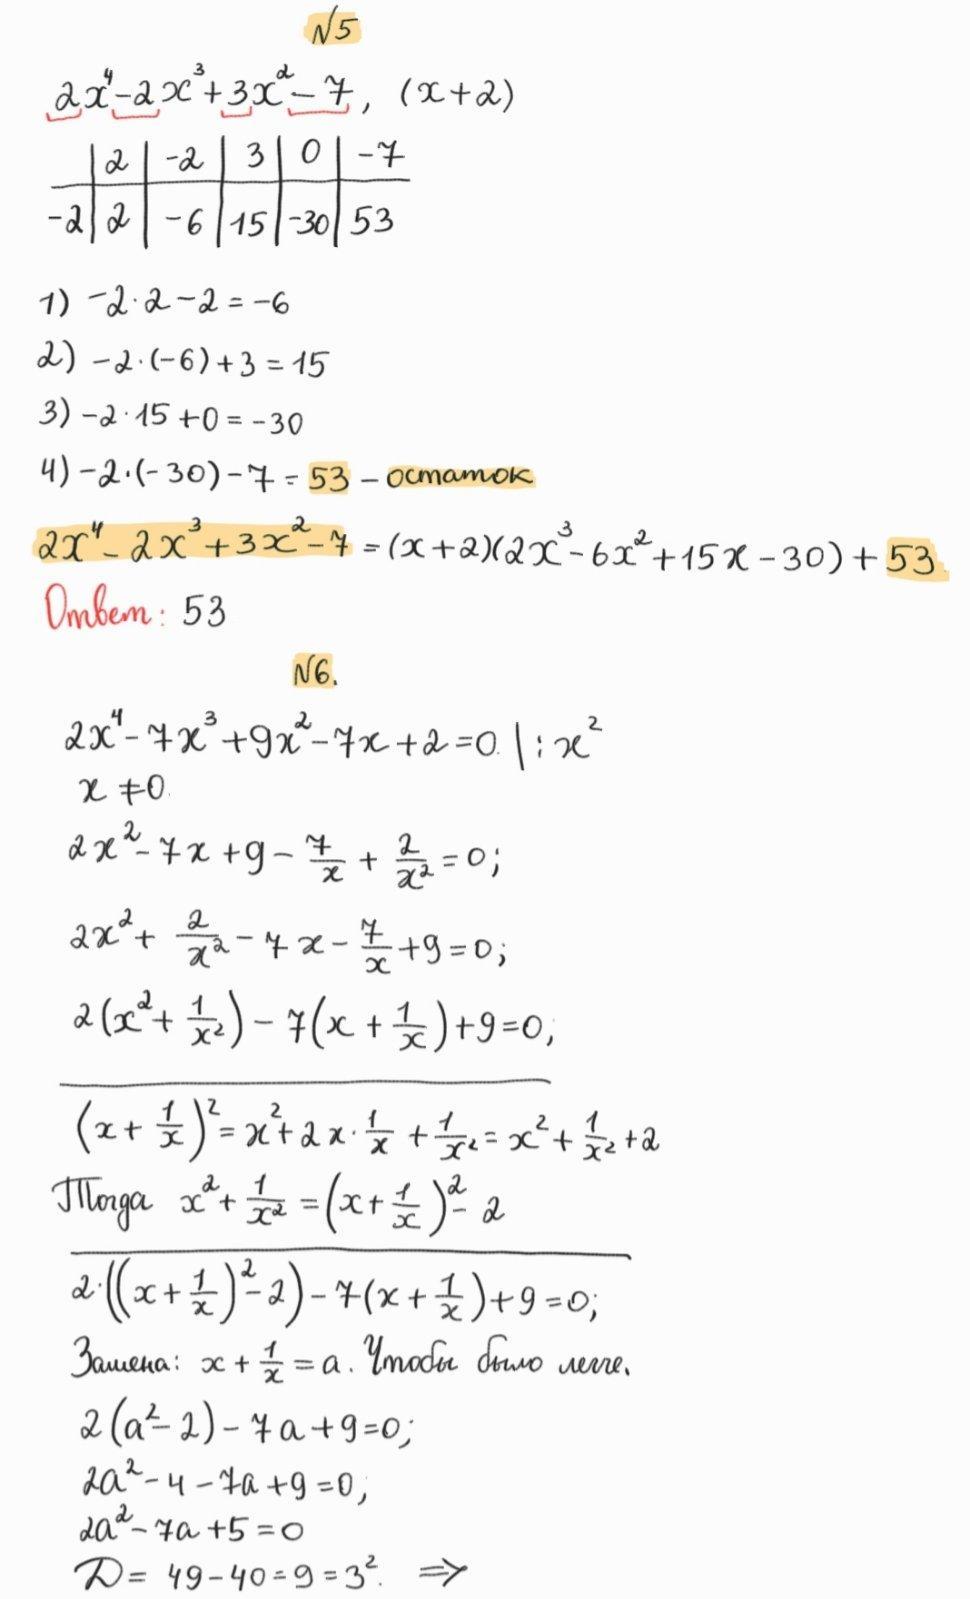 №5
2x⁴-2x³+3x²-7, (x+2)
| 2 | -2 | 3 | 0 | -7
-2 | 2 | -6 | 15 | -30 | 53
1) -2·2-2=-6
2) -2·(-6)+3=15
3) -2·15+0=-30
4) -2·(-30)-7=53 - остаток
2x⁴-2x³+3x²-7=(x+2)(2x³-6x²+15x-30)+53.
Ответ: 53
№6.
2x⁴-7x³+9x²-7x+2=0. |:x²
x≠0.
2x²-7x+9-7/x+2/x²=0;
2x²+2/x²-7x-7/x+9=0;
2(x²+1/x²)-7(x+1/x)+9=0;
(x+1/x)²=x²+2x·1/x+1/x²=x²+1/x²+2
Тогда x²+1/x²=(x+1/x)²-2
2·((x+1/x)²-2)-7(x+1/x)+9=0;
Замена: x+1/x=a. Чтобы было легче.
2(a²-2)-7a+9=0;
2a²-4-7a+9=0;
2a²-7a+5=0
D=49-40=9=3². ⇒